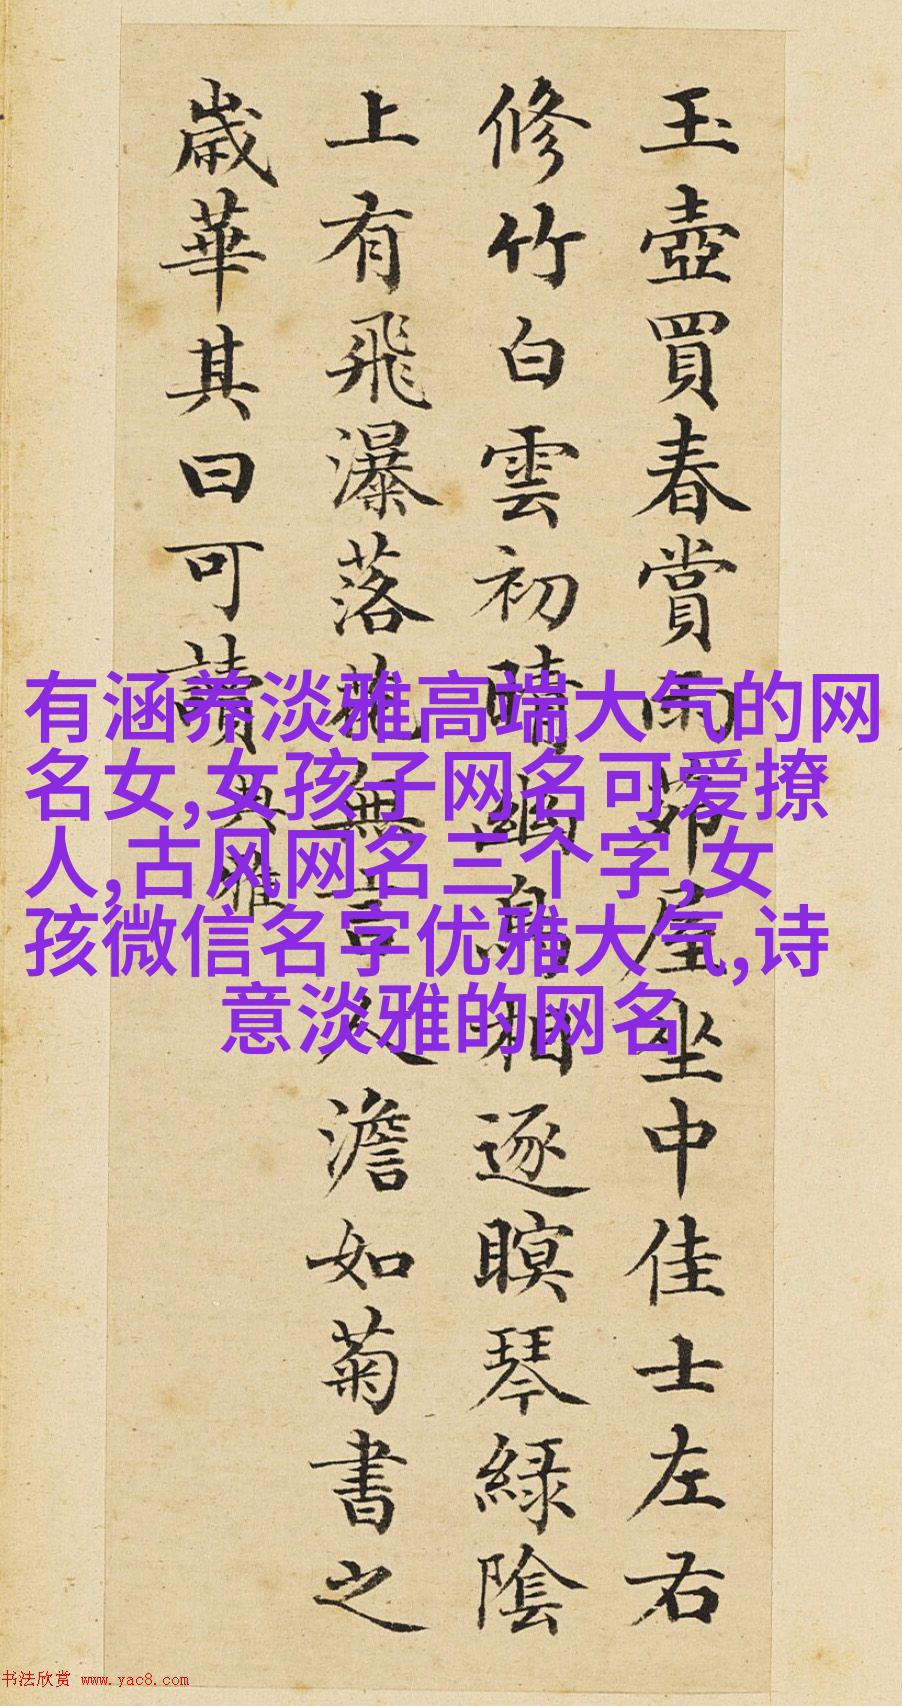 玉壺買春賞雨茆屋坐中佳士左右
修竹白雲初晴幽鳥相逐瞑琴緑陰
上有飛瀑落花無言人澹如菊書之
歲華其曰可讀
典雅
有涵养淡雅高端大气的网
名女,女孩子网名可爱撩
人,古风网名三个字,女
孩微信名字优雅大气,诗
意淡雅的网名
书法欣赏 www.yac8.com